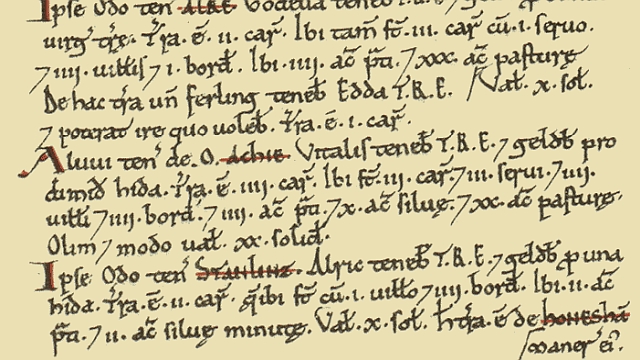 Ipse Odo ten̄ ALRE. Godeua teneb̄ T.R.E. ⁊
uirg̃ træ. Tr̃a. ē. ii. car̃. Ibi tam̄ st̄. iii. car̃ cū. i. seruo.
⁊ iiii. uiłłis ⁊ i. bord̄. Ibi. iiii. ac̃ p̃ti. ⁊ xxx. ac̃ pasturę
De hac tr̃a un̄ ferling teneb̄ Edda T.R.E. Vał. x. soł.
⁊ poterat ire quo uoleb̄. Tr̃a. ē. i. car̃.
Aluui ten̄ de. O. ACHIE. Vitalis teneb̄ T.R.E. ⁊ geldb̄ pro
dimid hida. Tr̃a. ē. iiii. car̃. Ibi st̄. iii. car̃. ⁊ iii. serui. ⁊ iii.
uiłłi ⁊ iiii. bord̄. ⁊ iiii. ac̃ p̃ti. ⁊ x. ac̃ siluę. ⁊ xx. ac̃ pasturę.
Olim ⁊ modo uał. xx. solid̄.
Ipse Odo ten̄ Alric teneb̄ T.R.E. ⁊ geldb̄ p̱ una
hida. Tr̃a. ē. ii. car̃. q̃ibi st̄ cū. i. uiłło ⁊ iiii. bord̄. Ibi. ii. ac̃
p̃ti. ⁊ ii. ac̃ siluę minutę. Vał. x. soł. h̃ tr̃a. ē de
maner̃ ei᷒.